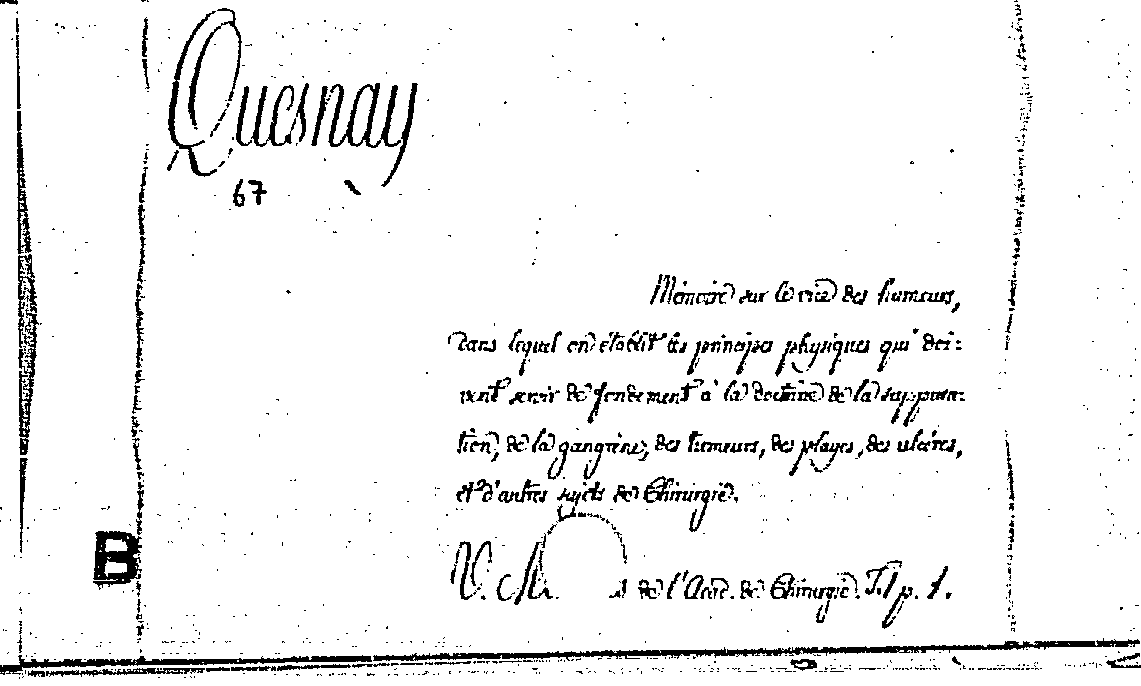 Quesnay
67
Mémoire sur le vice des humeurs,
dans lequel on établit les principes physiques qui doi:
vent servir de fondement à la doctrine de la suppura:
tion, de la gangrène, des tumeurs, des playes, des ulcères,
et d'autres sujets de Chirurgie.
B
V. de l'Acad. de Chirurgie. T.1 p. 1.